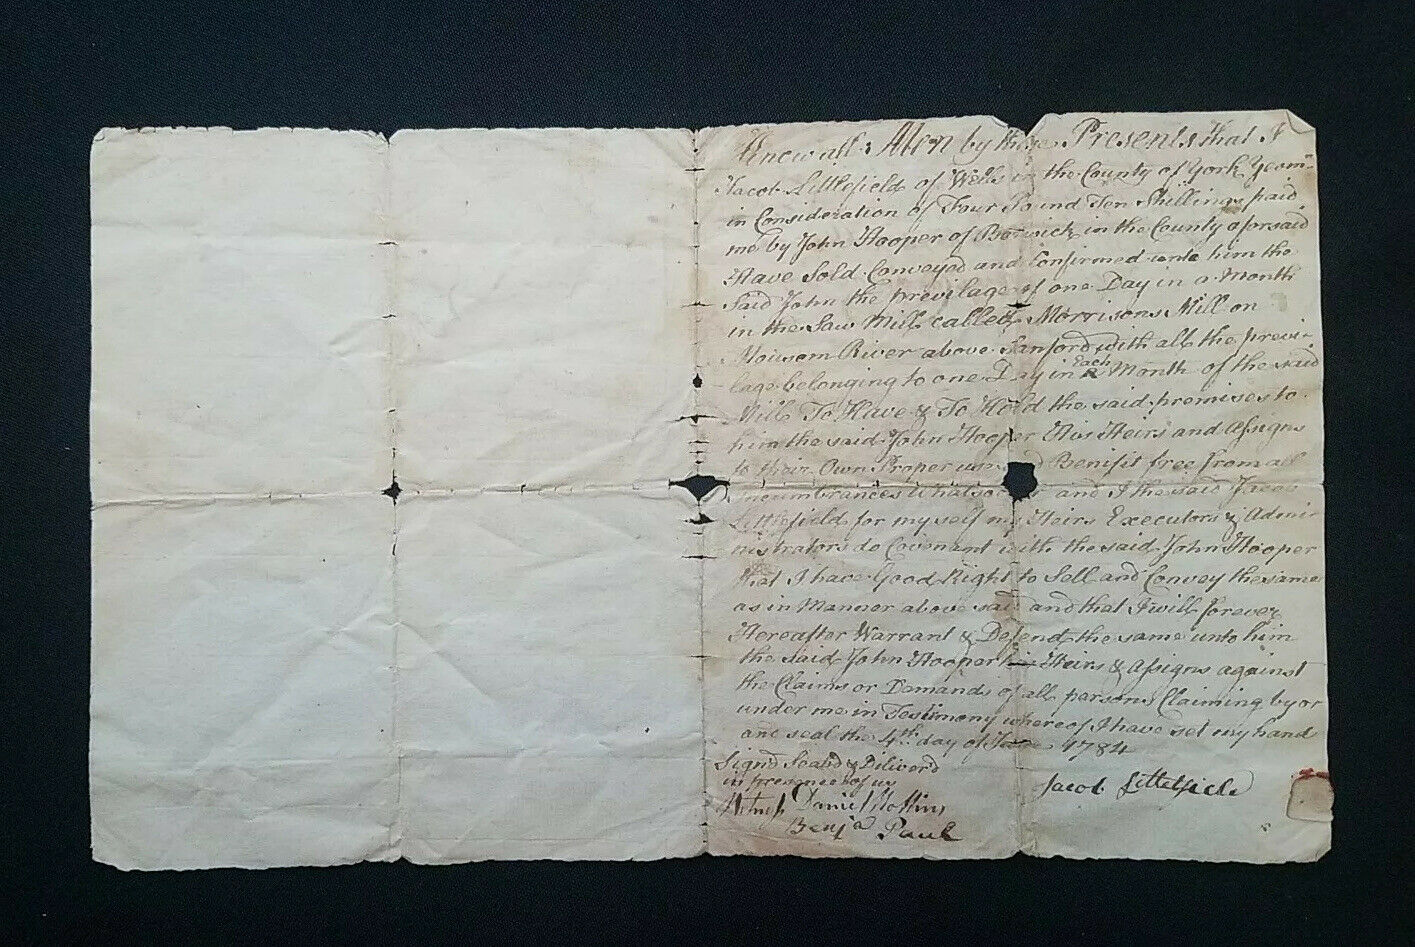 Know all Men by these Presents that I
Jacob Littlefield of Wells in the County of York Yeom-
in Consideration of Four Pound Ten Shillings paid
me by John Hooper of Barwick in the County aforsaid
Have Sold Conveyed and Confirmed unto him the
Said John the previlage of one Day in a Month
in the Saw Mill called Morrisons Mill on
River above Sanford with all the previ-
lage belonging to one Day in Each Month of the said
Mill To Have & To Hold the said premises to
him the said John Hooper His Heirs and Assigns
to their Own Proper Benifit free from all
Incumbrances and I the said Jacob
Littlefield for my self my Heirs Executors & Admi-
nistrators do Covenant with the said John Hooper
that I have Good Right to Sell and Convey the same
as in Mannor above said and that I will forever
Hereafter Warrant & Defend the same unto him
the said John Hooper his Heirs & Assigns against
the Claims or Demands of all parsons Claiming by or
under me in Testimony whereof I have set my hand
and seal the 4th day of 1784
Signd Seald & Deliverd
in presence of us
Jacob Littelfield
Witness Daniel
Benja Paul